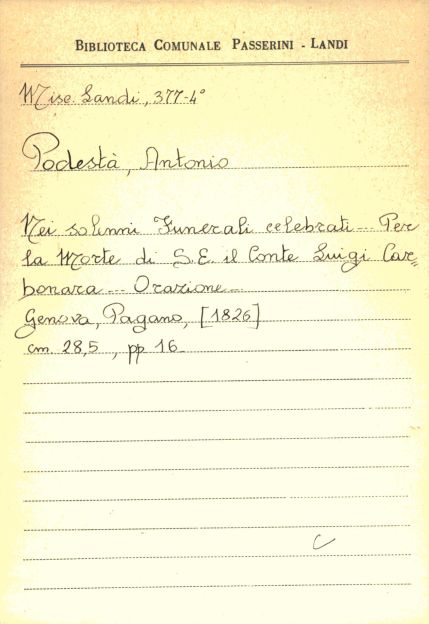 BIBLIOTECA COMUNALE PASSERINI - LANDI
Misc. Landi, 377-4°
Podestà, Antonio
Nei solenni Funerali celebrati... Per
la Morte di S.E. il Conte Luigi Car=
bonara... Orazione...
Genova, Pagano, [1826]
cm. 28,5 , pp 16
C